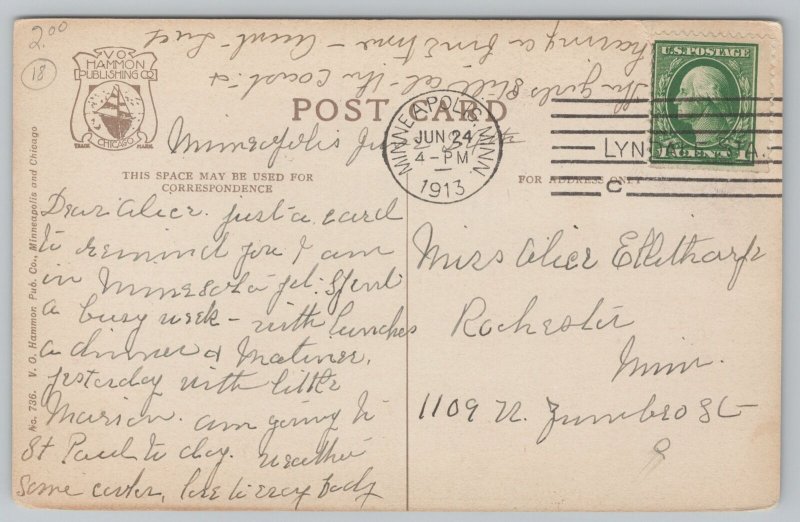 2.00
18
V O
HAMMON
PUBLISHING CO
CHICAGO
TRADE MARK
POST CARD
THIS SPACE MAY BE USED FOR
CORRESPONDENCE
FOR ADDRESS ONLY
No. 736. V. O. Hammon Pub. Co., Minneapolis and Chicago
MINNEAPOLIS, MINN.
JUN 24
4-PM
1913
LYNDALE STA.
C
U.S. POSTAGE
1 CENT 1
Minneapolis
Dear Alice. just a card
to remind you I am
in Minnesota yet. Spent
a busy week - with lunches
a dinner & Matinee,
yesterday with little
Marion. am going to
St Paul to day. weather
some cooler, love to every body
the girls still at the coast &
having a fine time - Aunt
Miss Alice
Rochester
Minn.
1109 N. Zumbro St